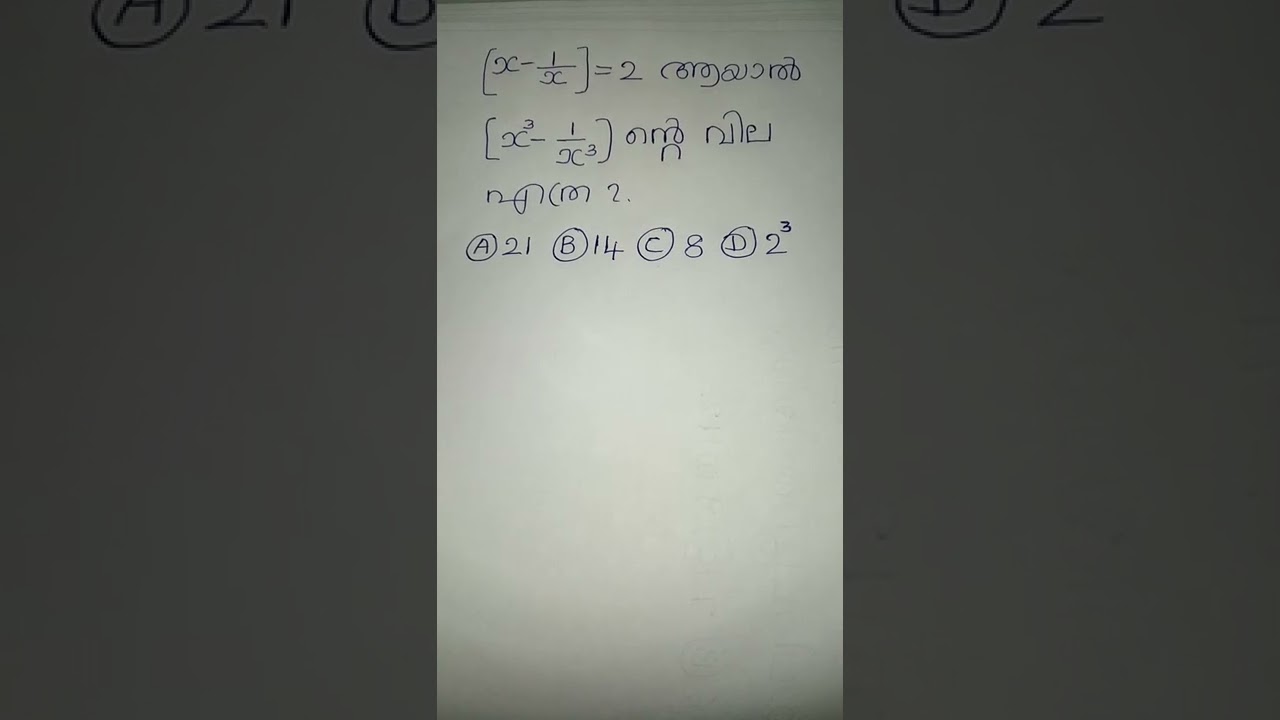 [x - 1/x] = 2 ആയാൽ
[x³ - 1/x³] ന്റെ വില
എത്ര ?.
Ⓐ 21 Ⓑ 14 Ⓒ 8 Ⓓ 2³